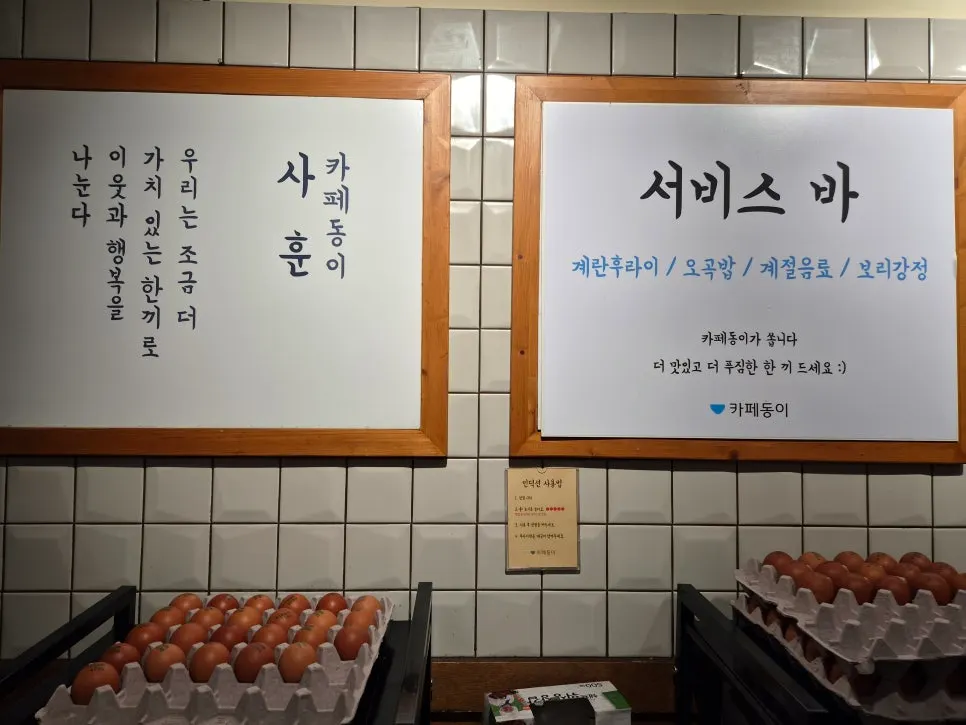 카페동이
사훈
우리는 조금 더
가치 있는 한끼로
이웃과 행복을
나눈다
서비스 바
계란후라이 / 오곡밥 / 계절음료 / 보리강정
카페동이가 쏩니다
더 맛있고 더 푸짐한 한 끼 드세요 :)
카페동이
인덕션 사용법
카페동이